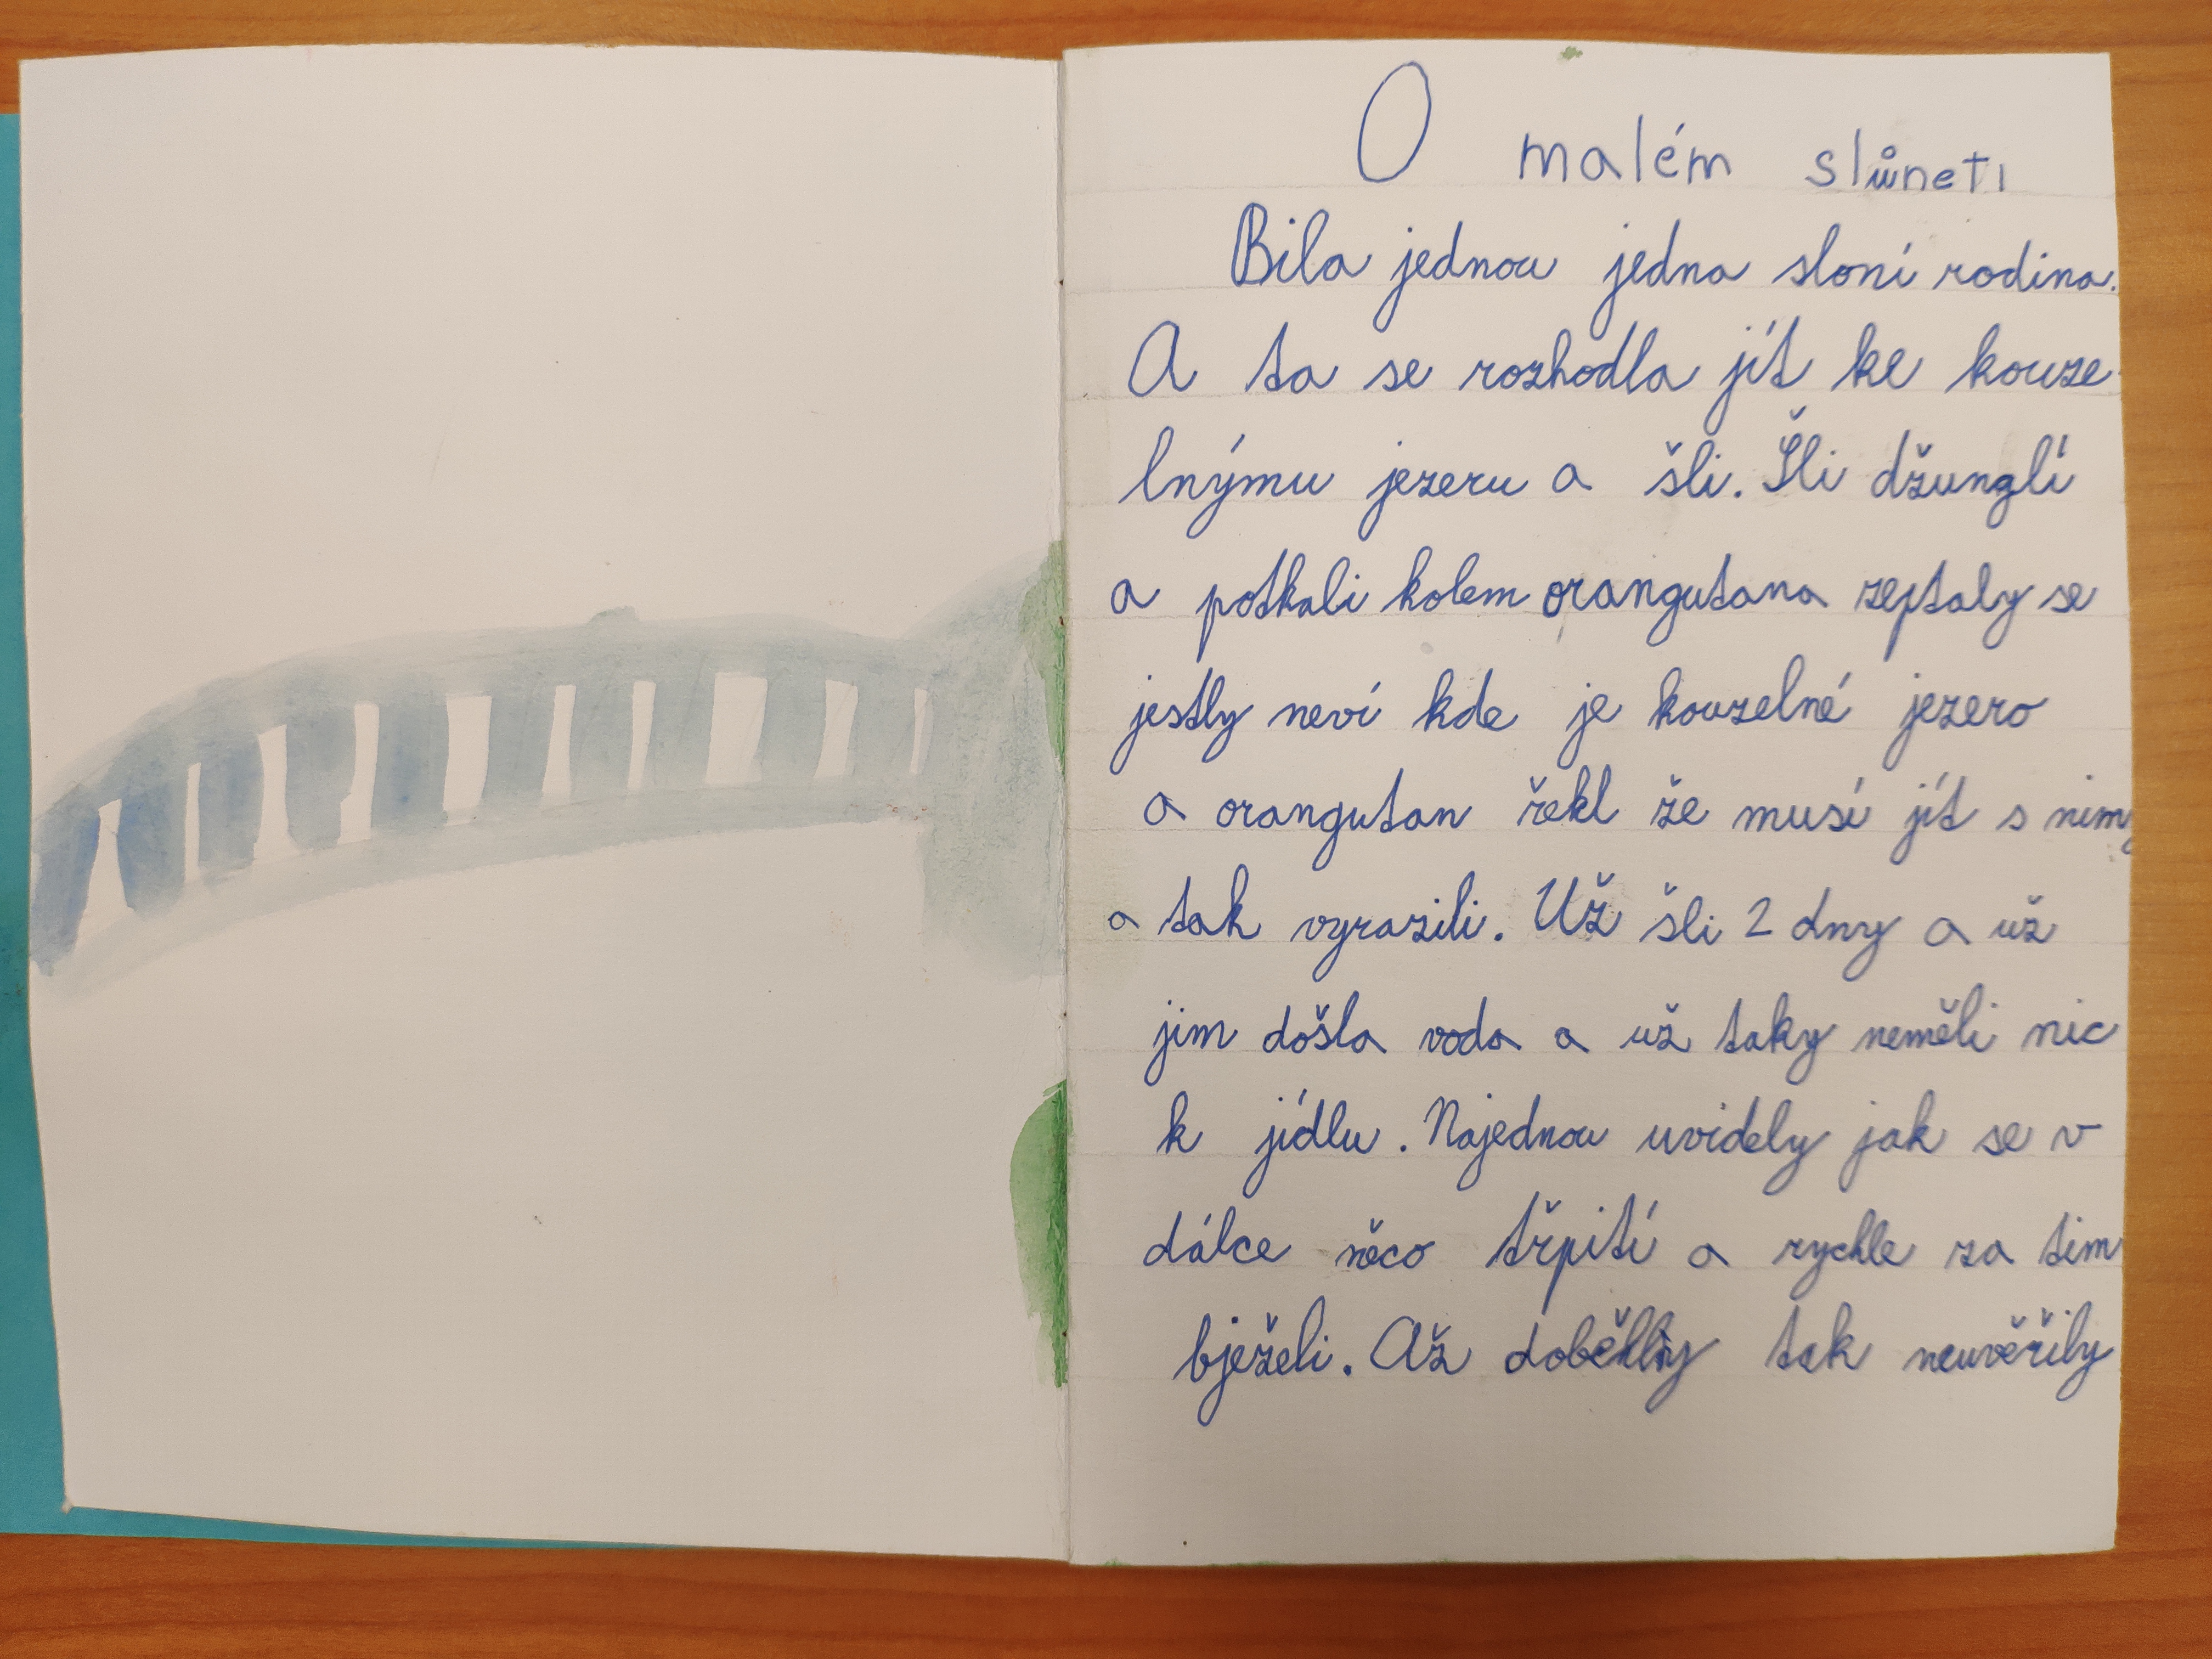 O malém slůneti
Bila jednou jedna sloní rodina.
A ta se rozhodla jít ke kouze
lnýmu jezeru a šli. Šli džunglí
a potkali kolem orangutana zeptaly se
jestly neví kde je kouzelné jezero
a orangutan řekl že musí jít s nimy
a tak vyrazili. Už šli 2 dny a už
jim došla voda a už taky neměli nic
k jídlu. Najednou uvidely jak se v
dálce něco třpití a rychle za tim
bježeli. Až doběhly tak neuvěřily